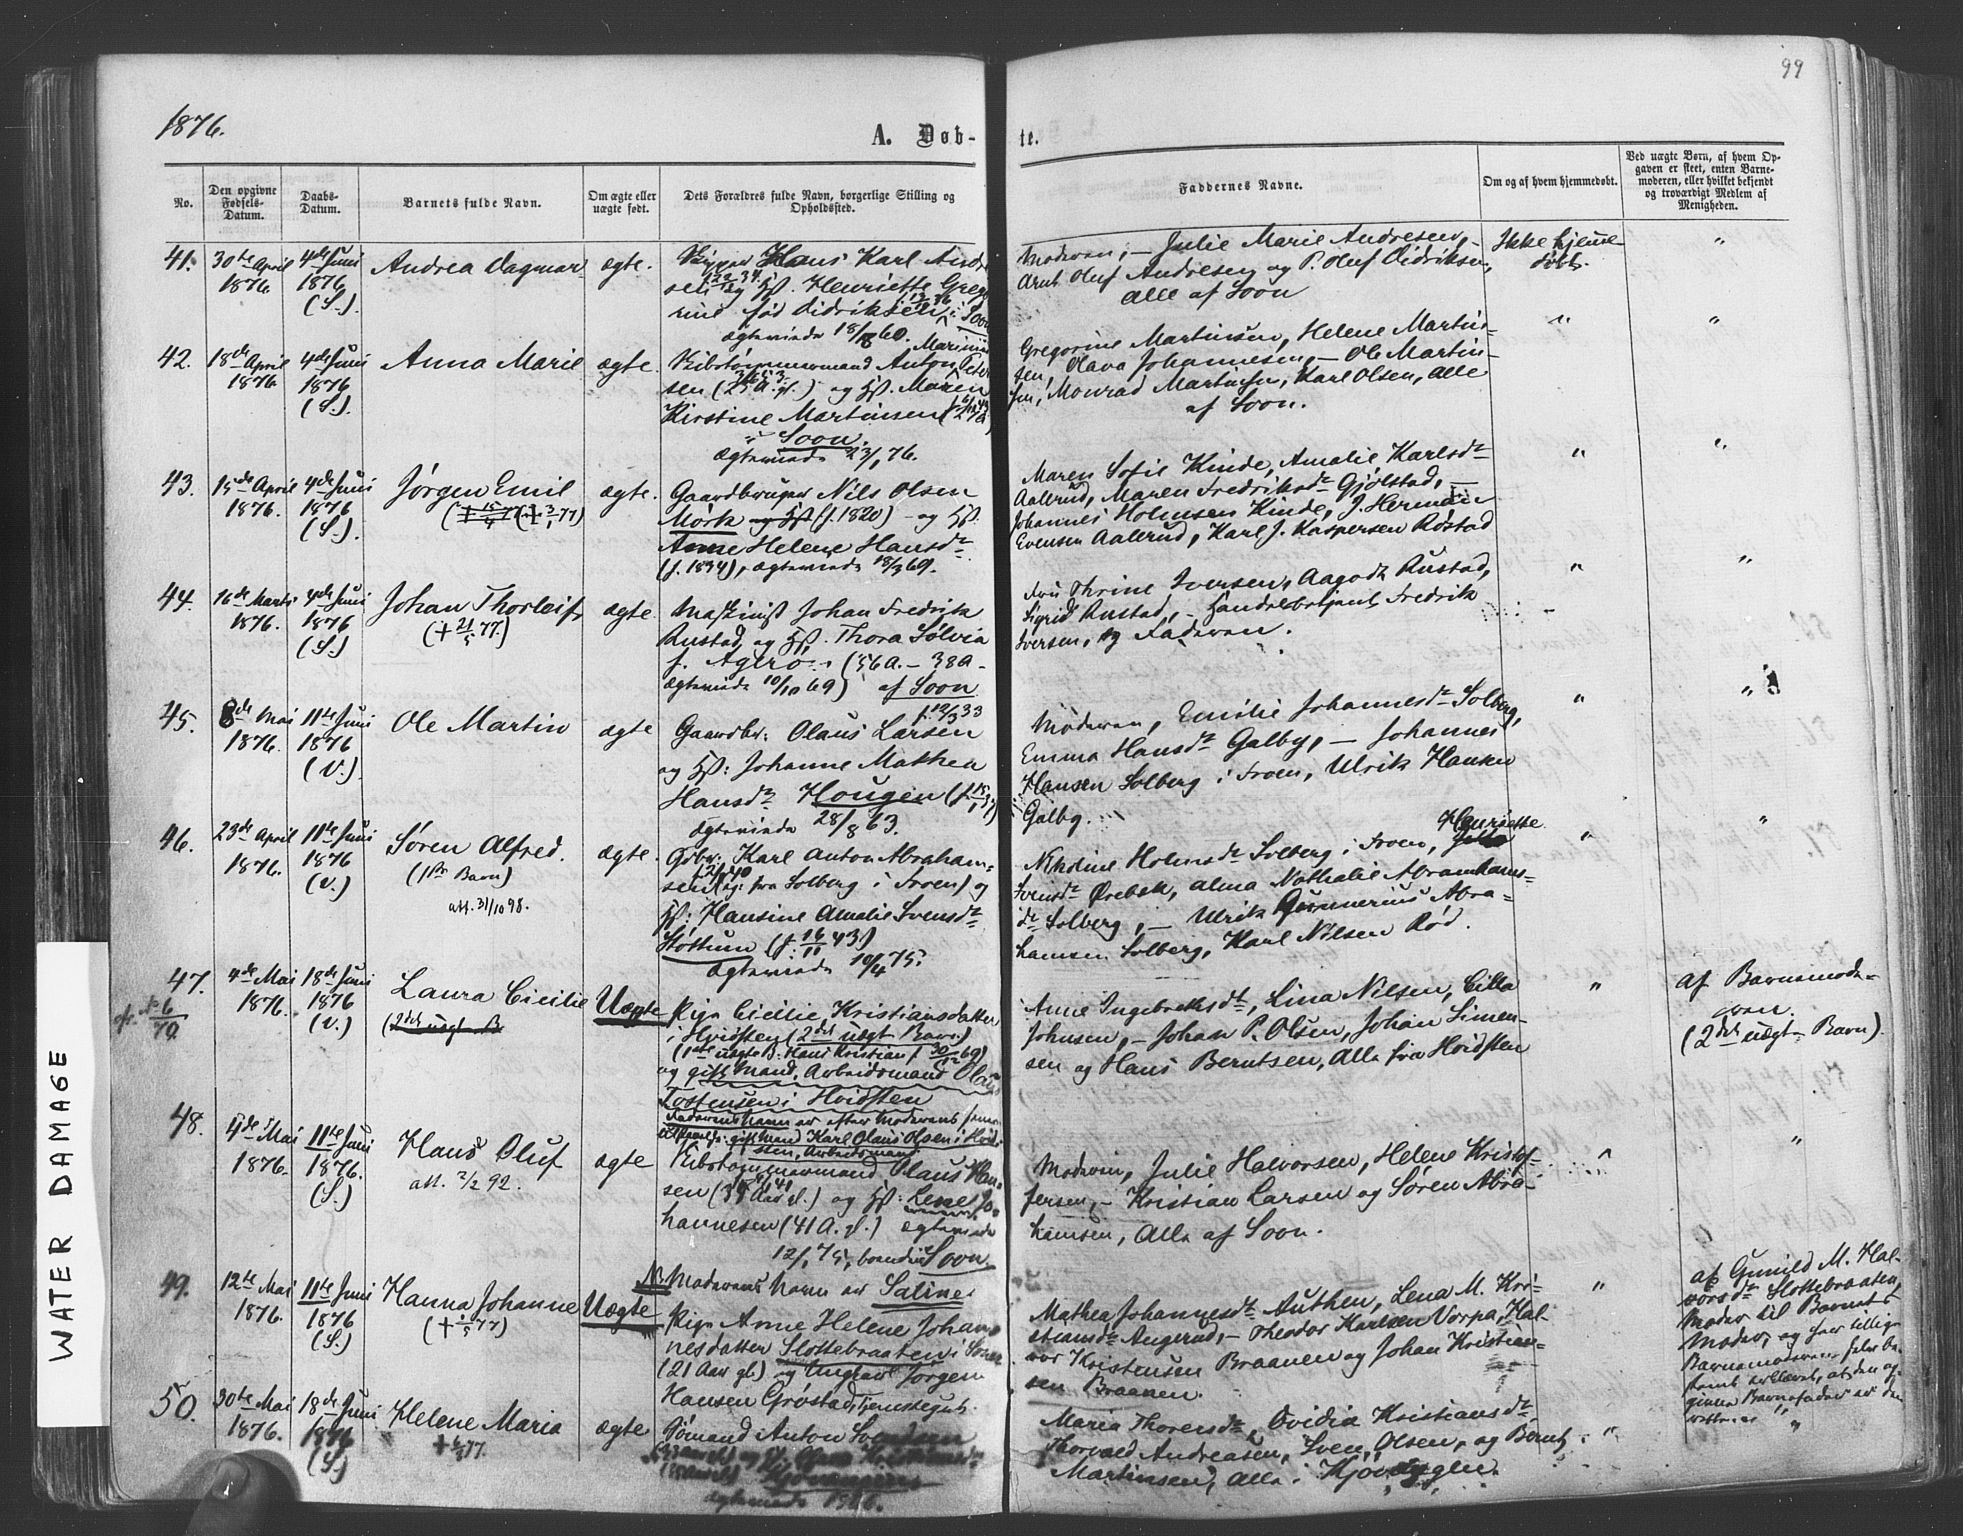 99
1876.
A. Døb-
te.
No.
Den opgivne Fødsels-Datum.
Daabs-Datum.
Barnets fulde Navn.
Om ægte eller uægte født.
Dets Forældres fulde Navn, borgerlige Stilling og Opholdssted.
Faddernes Navne.
Om og af hvem hjemmedøbt.
Ved uægte Børn, af hvem Opgaven er skeet, enten Barnemoderen, eller hvilket bekjendt og troværdigt Medlem af Menigheden.
41. 30te April 1876 4de Juni 1876 (S.) Andrea Dagmar ægte.
Skipper Hans Karl Andre-
sen og Hst. Henriette Greg
ine fød Didriksen, i Soon
ægteviede 18/8 60.
Moderen, – Julie Marie Andresen, –
Arnt Oluf Andresen og P. Oluf Didriksen,
alle af Soon
Ikke hjemme-
døbt.
"
42. 18de April 1876 4de Juni 1876 (S.) Anna Marie ægte.
Skibstømmermand Anton Peter
sen (23 A. gl.) og Hst. Maren
Kirstine Martinsen
i Soon.
ægteviede 23/1 76.
Gregorine Martinsen, Helene Martin-
sen, Olava Johannesen, – Ole Martin-
sen, Monrad Martinsen, Karl Olsen, alle
af Soon.
"
"
43. 15de April 1876. 4de Juni 1876 (S.) Jørgen Emil ægte.
(+ 3/1 77)
Gaardbruger Nils Olsen
Mørk og Hst (f. 1820) – og Hst.
Anne Helene Hansdtr
(f. 1834), ægteviede 18/3 69.
Maren Sofie Kinde, Amalie Karlsdtr
Aallerud, Maren Fredriksdtr Gjølstad, –
Johannes Holmsen Kinde, J. Herman
Evensen Aallerud, Karl J. Kaspersen Rostad
"
"
44. 16de Marts 1876. 4de Juni 1876 (S.) Johan Thorleif ægte
(+ 21/5 77.)
Maskinist Johan Fredrik
Rustad og Hst. Thora Sølvia
f. Agero – (36 A. – 38 A –
ægteviede 10/10 69) af Soon
Fru Thrine Iversen, Aagodt Rustad,
Sigrid Rustad, – Handelsbetjent Fredrik
Iversen, og Faderen.
"
"
45. 8de Mai 1876. 11te Juni 1876 (V.) Ole Martin ægte
f. 12/3 33
Gaardbr. Olaus Larsen
og Hst: Johanne Mathea
Hansdtr Hougen
ægteviede 28/8 63.
Moderen, Emilie Johannesdtr Solberg,
Emma Hansdtr Galby, – Johannes
Hansen Solberg i Froen, Ulrik Hansen
Galby.
"
"
46. 23de April 1876. 11te Juni 1876 (V.) Søren Alfred. ægte.
(1ste Barn)
att. 31/10 98.
Gdbr. Karl Anton Abraham-
sen (og: fra Solberg i Froen) og
Hst: Hansine Amalie Svensdtr
Støttum (f. 16/11 43.)
ægteviede 10/4 75.
Henriette
Nikoline Holmsdtr Solberg i Froen,
Svensdtr Ørebek, Alma Nathalie Abrahams-
dtr Solberg, – Ulrik Gunnerius Abra-
hamsen Solberg, Karl Nilsen Rød.
"
"
47. 4de Mai 1876. 18de Juni 1876 (V.) Laura Cicilie Uægte
cfr. No 6/70.
(2det uægt. B
Pige Cicilie Kristiansdatter
i Hvidsten (2det uægt Barn.)
(1ste uægte B. Hans Kristian f. 30/12 69)
og gift Mand, Arbeidsmand Olaus
Tostensen i Hvidsten
Faderens Navn er efter Moderens
gift Mand Karl Olaus Olsen i Hvid-
sten, Arbeidsmand
Anne Ingebrethsdtr, Lina Nilsen, Cilla
Johnsen, – Johan P. Olsen, Johan Simen-
sen og Hans Berntsen, Alle fra Hvidsten
"
af Barnemode-
ren.
(2det uægt. Barn).
48. 4de Mai 1876. 11te Juni 1876. (S.) Hans Oluf ægte
att. 2/2 92.
Skibstømmermand Olaus Han-
sen (35 Aar gl.) og Hst: Lene Jo-
hannesen (41 A. gl.) ægteviede
12/1 75, boende i Soon.
Moderen, Julie Halvorsen, Helene Kristof-
fersen, – Kristian Larsen og Søren Abra-
hamsen, Alle af Soon.
"
"
49. 12te Mai 1876. 11te Juni 1876 (S.) Hanna Johanne Uægte
NB Moderens Navn er Saline
Pige Anne Helene Johan-
nesdatter Slottebraaten i
(21 Aar gl.) og Ungkarl Jørgen
Hansen Grøstad, Tjenestegut.
Mathea Johannesdtr Authen, Lena M. Kri-
stiansdtr Angerud, – Theodor Karlsen Vorpa, Hal-
vor Kristensen Braanen og Johan Kristian-
sen Braanen.
"
af Gunild M. Hal-
vorsdtr Slottebraaten,
Moder til Barnets
Moder, og har tillige
Barnemoderen selv be-
stemt erklæret, at den op-
givne Barnefader er den
rette.
50. 30te Mai 1876. 18de Juni 1876 (S.) Helene Maria ægte
Sømand Anton Svendsen
ægteviede
Maria Thorersdtr, Ovidia Kristiansdtr,
Thorvald Andreasen, Sven Olsen, og Bernt
Martinsen, Alle i
"
"
WATER DAMAGE